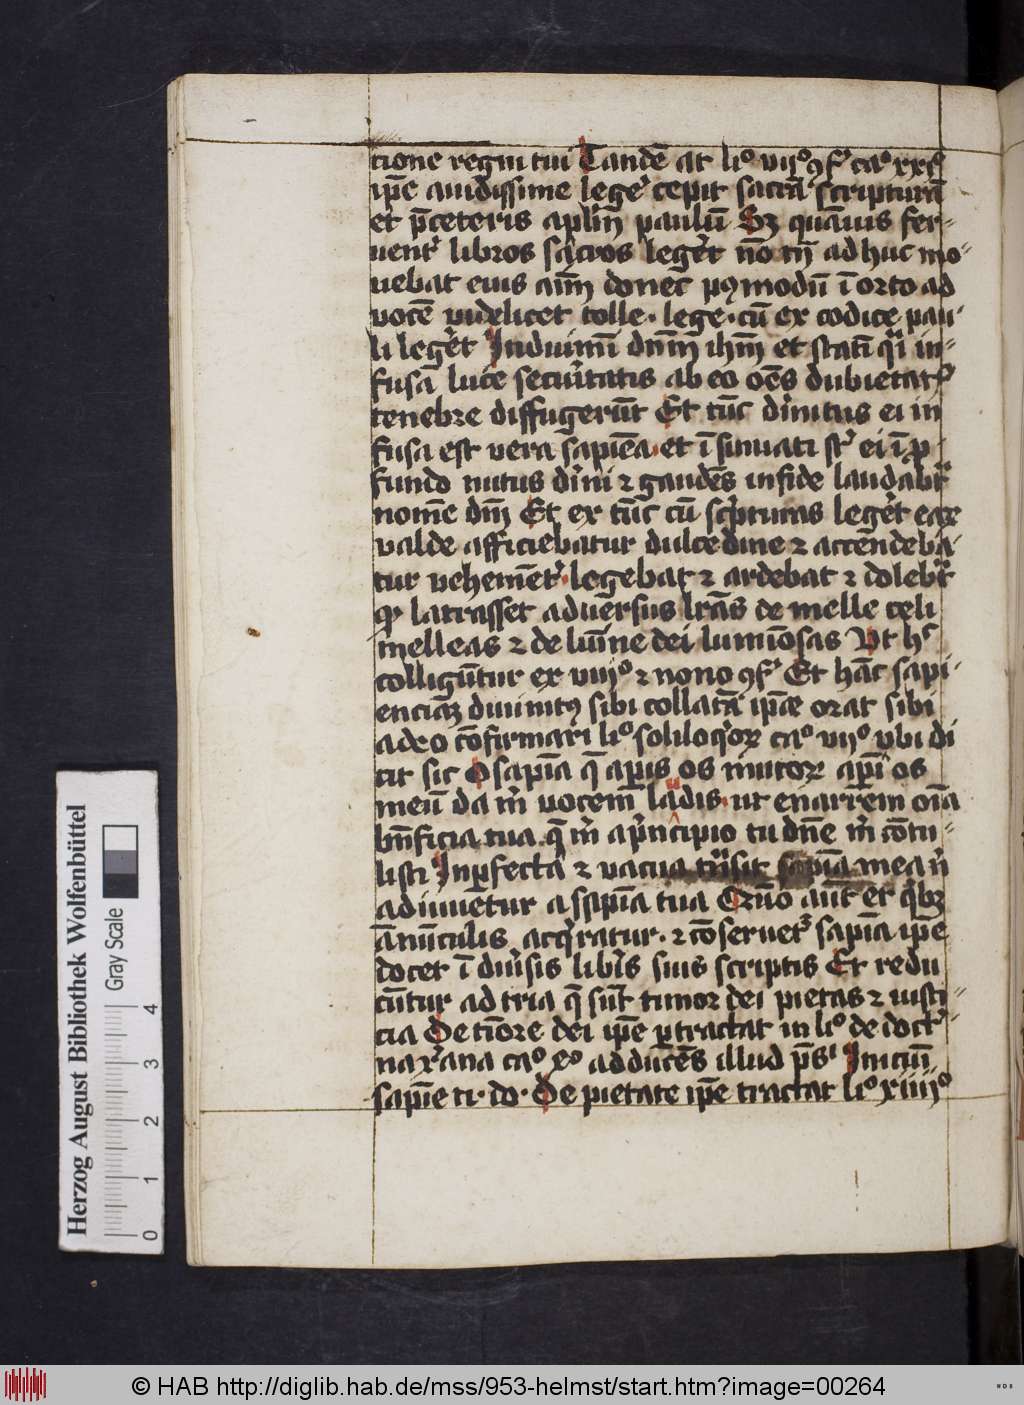 tione regni tui Tandē at li° vij° ɔf' ca° xxi°
ip̄e auidissime leg̾e cepit sacrā scripturā
et p̄ceteris aplm̄ paulū Sꝫ quāuis fer-
uent̾ libros sacros leg̾et nō tn̄ ad huc mo-
uebat eius aīm donec pꝯmodū ī orto ad
vocē videlicet tolle · lege · cū ex codice pau-
li leg̾et Induimī dnm̄ ihm̄ et statī q̾i in-
fusa luce secu̾itatis ab eo oēs dubietat̾
tenebre diffugerūt Et tūc di̾nitus ei in
fusa est vera sapiēa et ī sinuati st̾ ei ī ꝓ-
fundo nutus di̾ni ⁊ gaudēs in fide laudab̾t
nomē dm̄ Et ex tūc cū sc̾pturas leg̾et eax
valde afficiebatur dulcedine ⁊ accēndeba-
tur vehemēt̾ legebat ⁊ ardebat ⁊ doleb̾t
qꝫ latrasset aduersus lrās de melle celi
melleas ⁊ de lumīne dei luminosas Vt hͨ
colligūtur ex viij° ⁊ nono ɔf' Et hāc sapi-
enciaꝫ diuinitꝯ sibi collatā ip̄e orat sibi
adeo cōfirmari li° soliloq̾oꝝ ca° vij° vbi di
cit sic O sapīa q̄ ap̾uis os mutoꝝ ap̾i os
meū da m̾ vocem laudis ut enarrem oīa
bn̄ficia tua q̄ m̾ ap̾ncipio tu dn̄e m̾ cōtu-
listi Inp̄fecta ⁊ vacua tn̾sit sapīa mea n̾
adiuuetur a sapīa tua Cm̄o aūt et q̾bꝫ
ānūculis acq̾ratur · ⁊ cōseruet̾ sapīa ip̄e
docet ī diu̾sis lib̾is suis scriptis Et redu
cūtur ad tria q̄ sūt timor dei pietas ⁊ iusti-
cia De tiōre dei ip̄e ꝑtractat in li° de doct̾-
na x̾ana ca° x° adducēs illud p̄s' Iniciū
sapīe ti · do · De pietate ip̄e tractat li° xiiij°
Herzog August Bibliothek Wolfenbüttel
Gray Scale
0 1 2 3 4
© HAB http://diglib.hab.de/mss/953-helmst/start.htm?image=00264